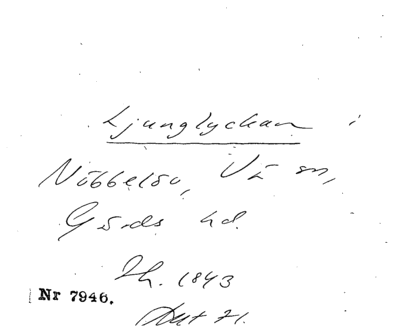 Ljunglyckan i
Nöbbelöv, Vä sn,
Gärds hd.
Th. 1843
Nr 7946.
Akt 71.